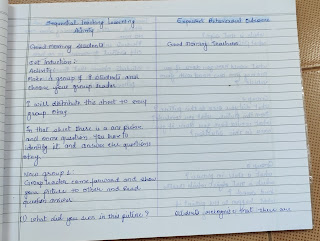 Sequential Teaching Learning
Activity
Expected Behavioural Outcome
Good morning students
Good Morning Teachers
Set Induction:
Activity:
Make a group of 8 students and
choose your group leader
I will distribute the sheet to every
group Okay.
In that sheet there is a
and some question. You have to
identify it and answer the questions
okay.
Now group 1:
Group leader came forward and show
your picture to other and
answer
1) What did you seen in this picture?
Students that there are